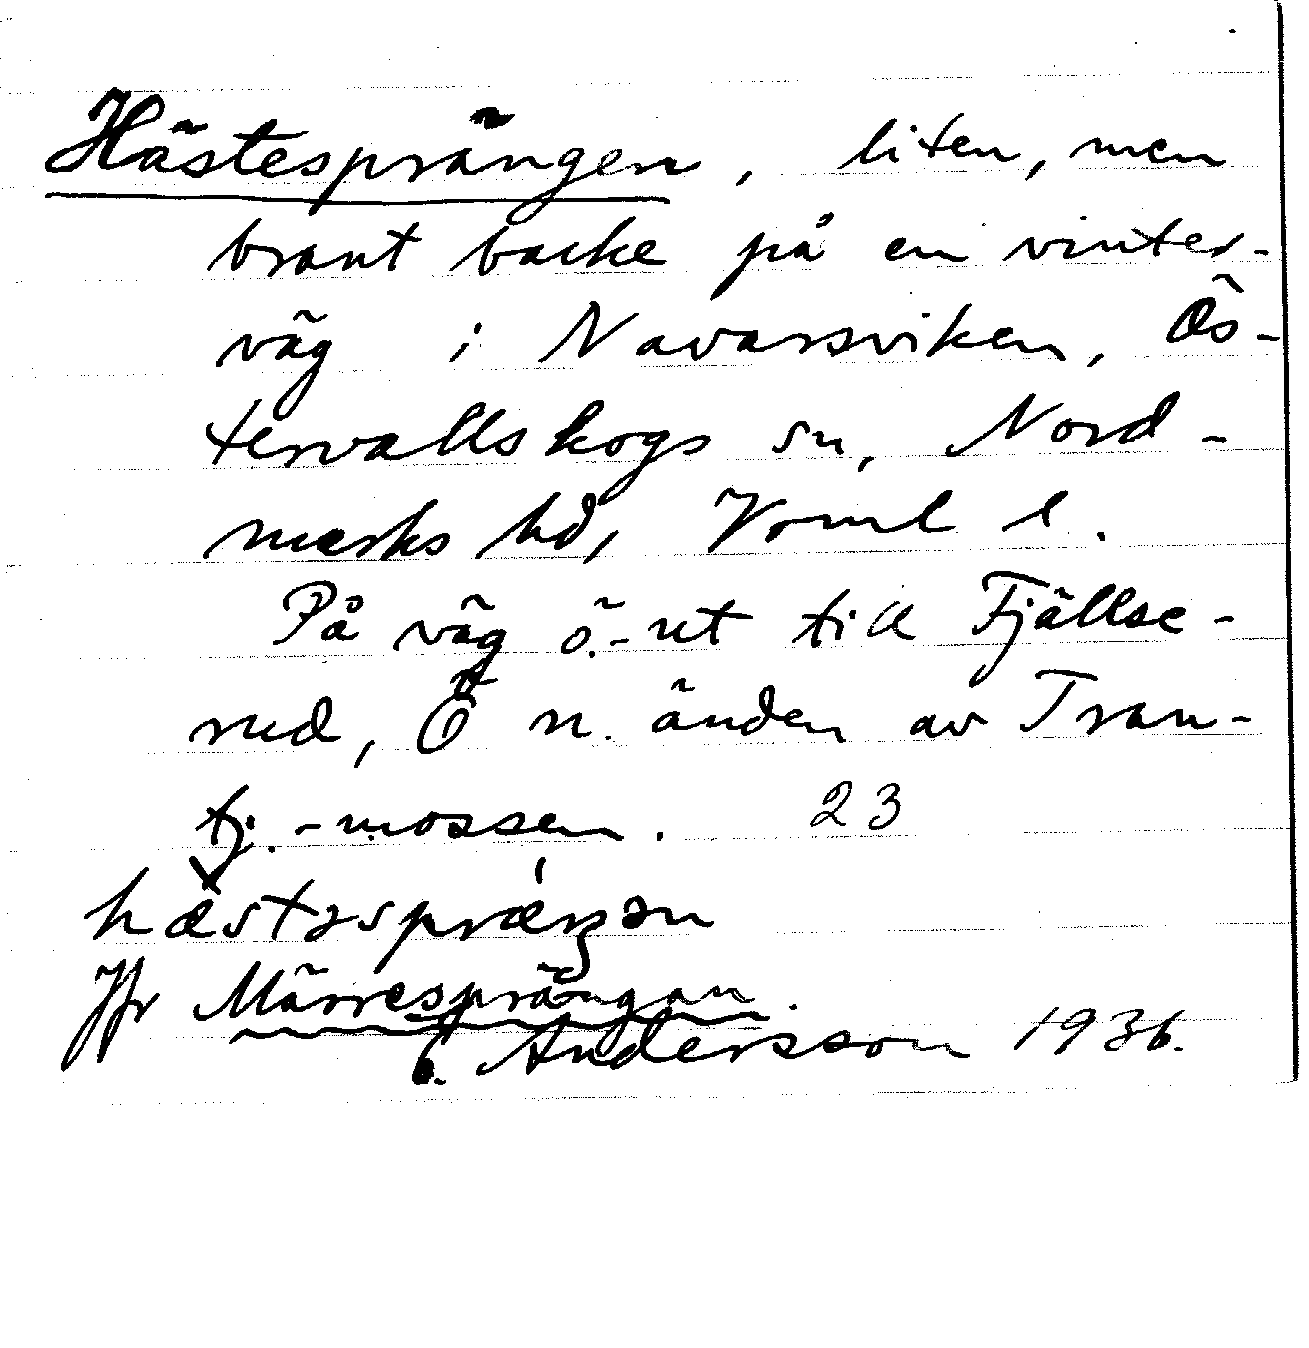 Hästesprängen, liten, men
brant backe på en vinter-
väg i Navarsviken, Ös-
tervallskogs sn, Nord-
marks hd, Värml l.
På väg ö.-ut till Fjällse-
rud, Ö n. änden av Tran-
tj.-mossen. 23
hæstəspræŋən
Jfr Märresprängan.
Andersson 1936.